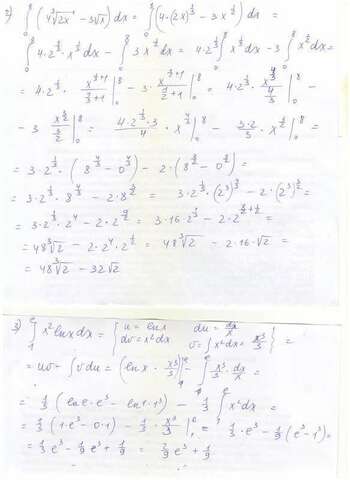 2) ∫₀⁸ (4∛(2x) - 3√x) dx = ∫₀⁸ (4·(2x)^(1/3) - 3x^(1/2)) dx =
∫₀⁸ 4·2^(1/3)·x^(1/3) dx - ∫₀⁸ 3x^(1/2) dx = 4·2^(1/3) ∫₀⁸ x^(1/3) dx - 3 ∫₀⁸ x^(1/2) dx =
= 4·2^(1/3) · x^(1/3+1)/(1/3+1) |₀⁸ - 3· x^(1/2+1)/(1/2+1) |₀⁸ = 4·2^(1/3) · x^(4/3)/(4/3) |₀⁸ -
- 3 x^(3/2)/(3/2) |₀⁸ = (4·2^(1/3)·3)/4 · x^(4/3) |₀⁸ - (3·2)/3 · x^(3/2) |₀⁸ =
= 3·2^(1/3) · (8^(4/3) - 0^(4/3)) - 2·(8^(3/2) - 0^(3/2)) =
= 3·2^(1/3)·8^(4/3) - 2·8^(3/2) = 3·2^(1/3)·(2³)^(4/3) - 2·(2³)^(3/2) =
= 3·2^(1/3)·2⁴ - 2·2^(9/2) = 3·16·2^(1/3) - 2·2^(8/2+1/2) =
= 48∛2 - 2·2⁴·2^(1/2) = 48∛2 - 2·16·√2 =
= 48∛2 - 32√2
3) ∫₁ᵉ x² ln x dx = { u = ln x du = dx/x
dv = x² dx v = ∫x² dx = x³/3 } =
= uv - ∫v du = (ln x · x³/3)|₁ᵉ - ∫₁ᵉ x³/3 · dx/x =
= 1/3 (ln e · e³ - ln 1 · 1³) - 1/3 ∫₁ᵉ x² dx =
= 1/3 (1·e³ - 0·1) - 1/3 · x³/3 |₁ᵉ = 1/3 · e³ - 1/9 (e³ - 1³) =
= 1/3 e³ - 1/9 e³ + 1/9 = 2/9 e³ + 1/9